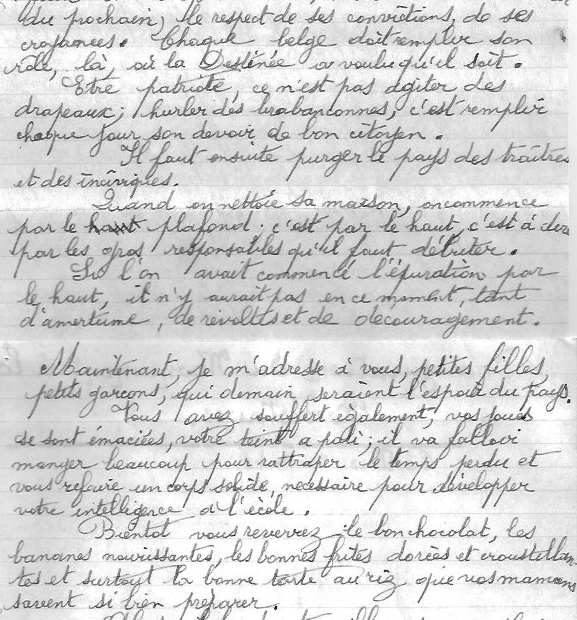 du prochain, le respect de ses convictions, de ses
croyances. Chaque belge doit remplir son
rôle, là, où la Destinée a voulu qu'il soit.
Etre patriote, ce n'est pas agiter des
drapeaux; hurler des brabançonnes, c'est remplir
chaque jour son devoir de bon citoyen.
Il faut ensuite purger le pays des traîtres
et des inciviques.
Quand on nettoie sa maison, on commence
par le haut plafond: c'est par le haut, c'est à dire
par les gros responsables qu'il faut débuter.
Si l'on avait commencé l'épuration par
le haut, il n'y aurait pas en ce moment, tant
d'amertume, de révoltes et de découragement.
Maintenant, je m'adresse à vous, petites filles,
petits garçons, qui demain, seraient l'espoir du pays.
Vous avez souffert également, vos joues
se sont émaciées, votre teint a pali; il va falloir
manger beaucoup pour rattraper le temps perdu et
vous refaire un corps solide, nécessaire pour développer
votre intelligence à l'école.
Bientot vous reverrez le bon chocolat, les
bananes nourissantes, les bonnes frites dorées et croustillan-
tes et surtout la bonne tarte au riz que vos mamans
savent si bien préparer.